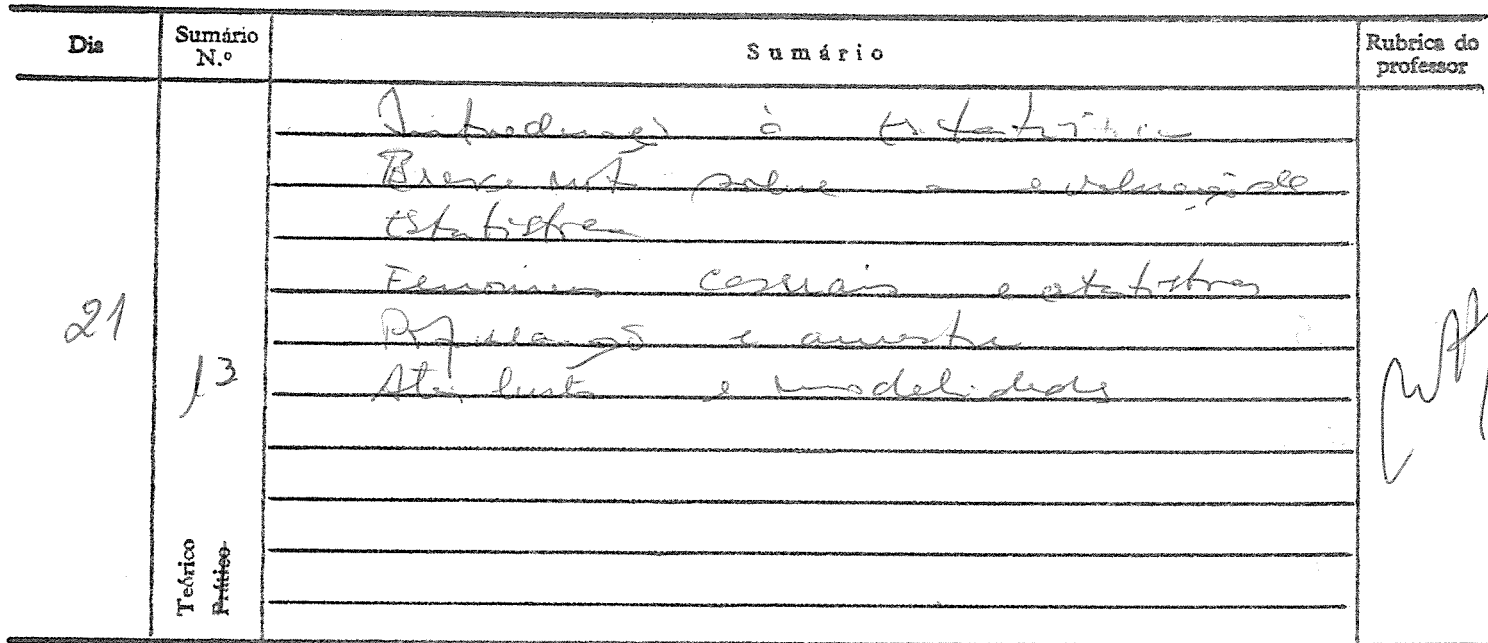 Dia
Sumário N.º
Sumário
Rubrica do professor
Introdução à Estatística
Breve nota sobre a evolução da
Estatística
Fenómenos casuais e estatísticos
População e amostra
Atributos e modalidades
21
13
Teórico
Prático